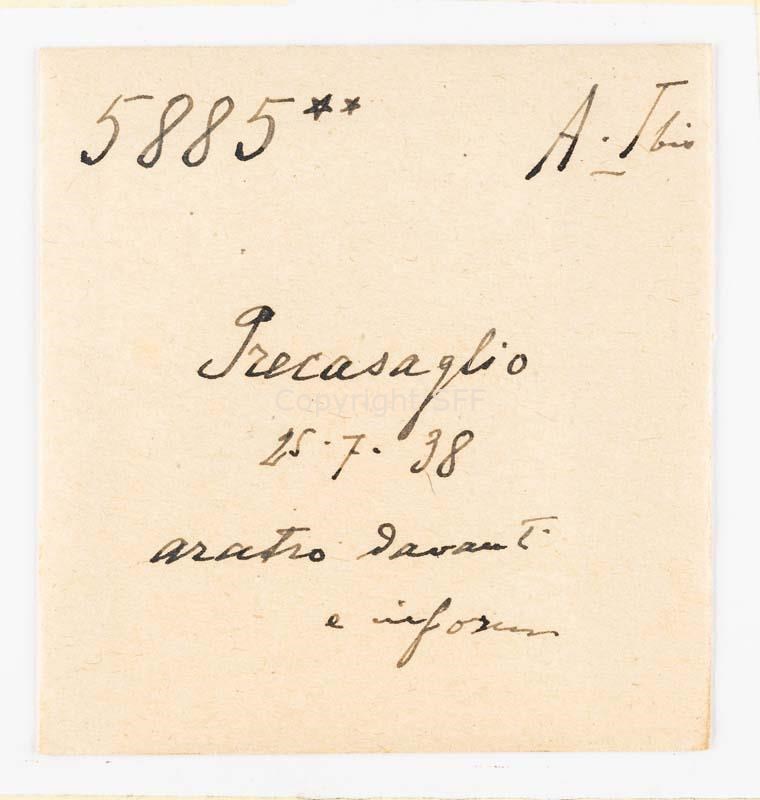 5885** A. I bis
Precasaglio
Copyright SFF
25. 7. 38
aratro davanti
e inform